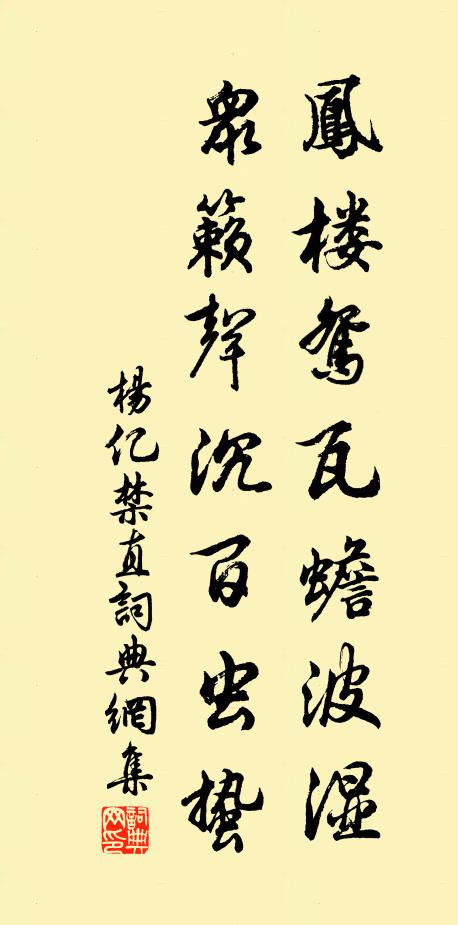 鳳楼鴛瓦蟾波湿
眾籟聲沉百虫蟄
楊亿禁直詞典網集
詞典網印